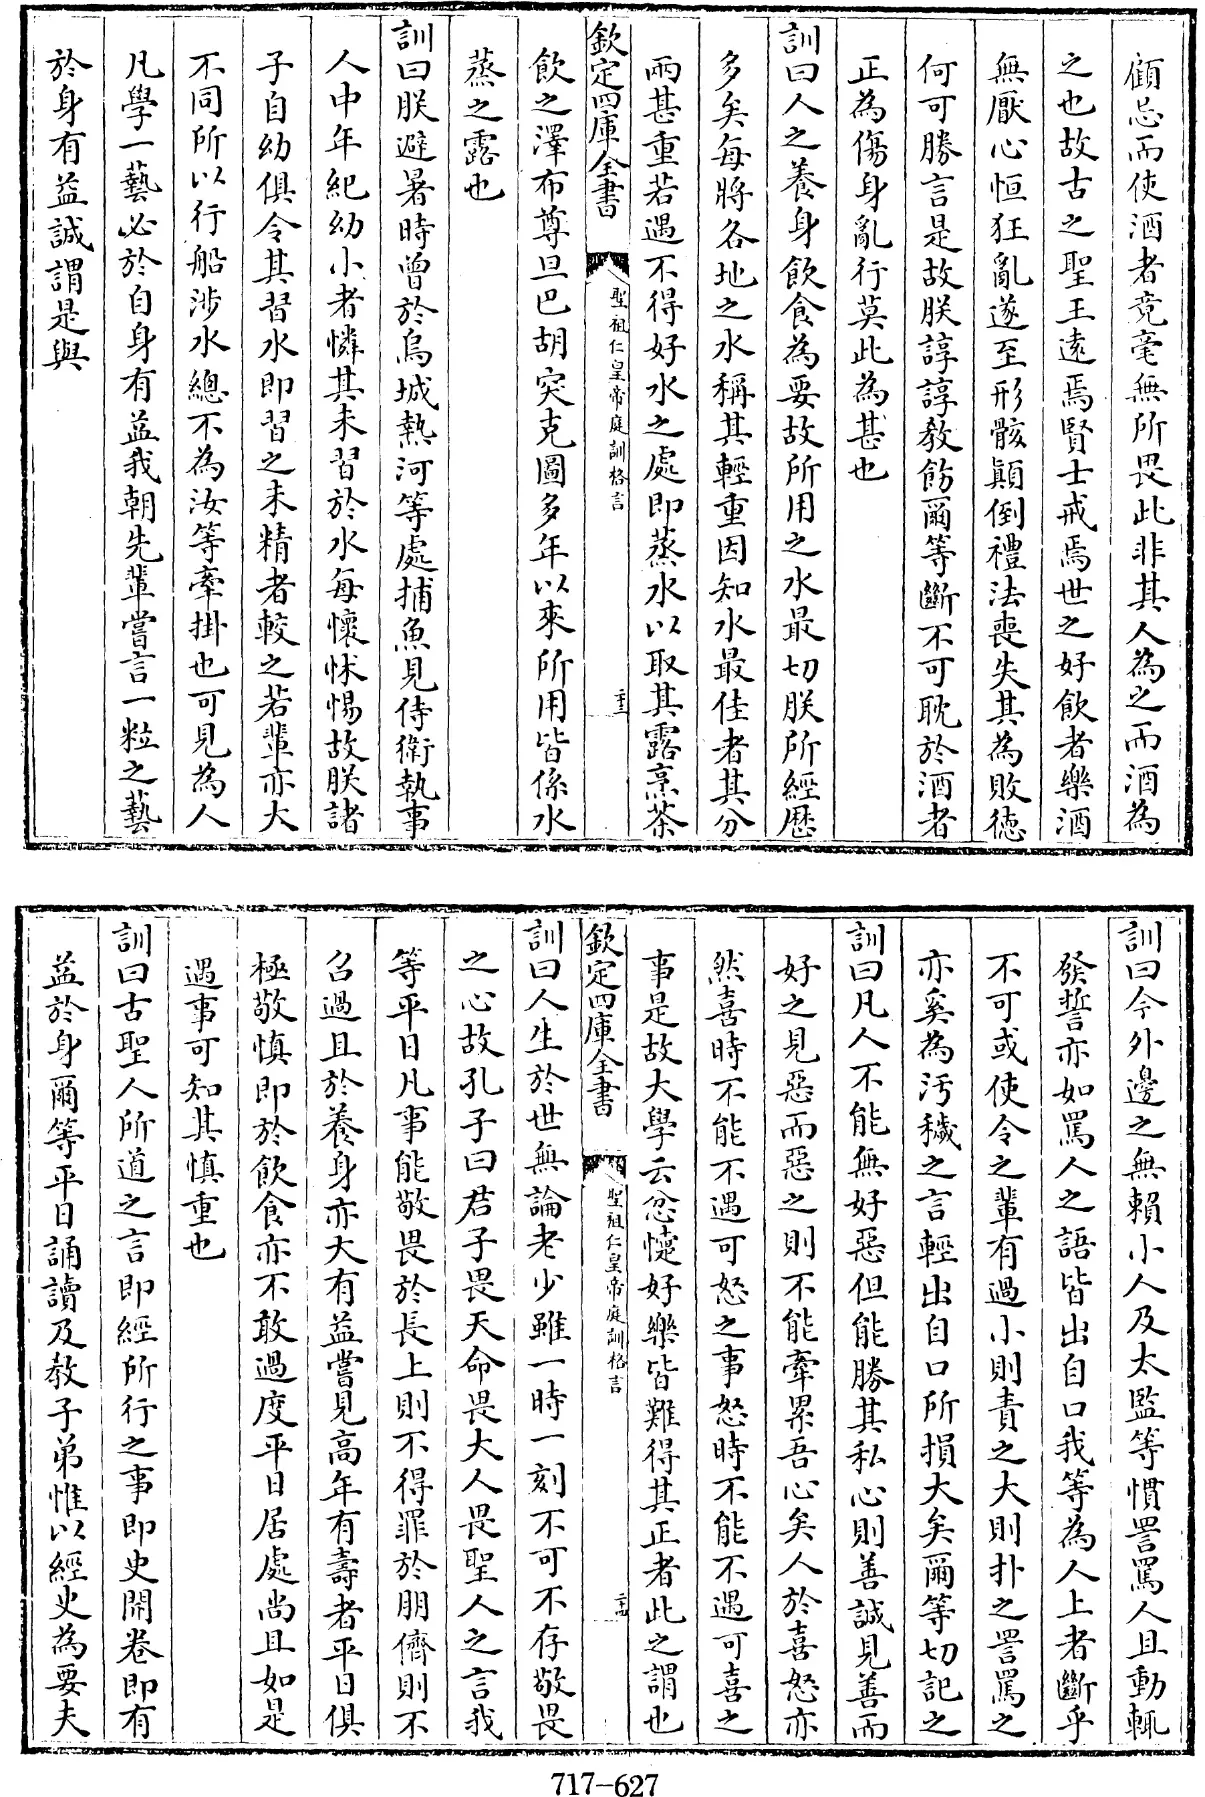 顧忌而使酒者竟毫無所畏此非其人為之而酒為
之也故古之聖王遠焉賢士戒焉世之好飲者樂酒
無厭心恒狂亂遂至形骸顛倒禮法喪失其為敗德
何可勝言是故朕諄諄教飭爾等斷不可耽於酒者
正為傷身亂行莫此為甚也
訓曰人之養身飲食為要故所用之水最切朕所經歷
多矣每將各地之水稱其輕重因知水最佳者其分
兩甚重若遇不得好水之處即蒸水以取其露烹茶
欽定四庫全書 聖祖仁皇帝庭訓格言 二十三
飲之澤布尊旦巴胡突克圖多年以來所用皆係水
蒸之露也
訓曰朕避暑時曾於烏城熱河等處捕魚見侍衛執事
人中年紀幼小者憐其未習於水每懷怵惕故朕諸
子自幼俱令其習水即習之未精者較之若輩亦大
不同所以行船涉水總不為汝等牽掛也可見為人
凡學一藝必於自身有益我朝先輩嘗言一粒之藝
於身有益誠謂是與
訓曰今外邊之無賴小人及太監等慣詈罵人且動輒
發誓亦如罵人之語皆出自口我等為人上者斷乎
不可或使令之輩有過小則責之大則扑之詈罵之
亦奚為汚穢之言輕出自口所損大矣爾等切記之
訓曰凡人不能無好惡但能勝其私心則善誠見善而
好之見惡而惡之則不能牽累吾心矣人於喜怒亦
然喜時不能不遇可怒之事怒時不能不遇可喜之
事是故大學云忿懥好樂皆難得其正者此之謂也
欽定四庫全書 聖祖仁皇帝庭訓格言 二十四
訓曰人生於世無論老少雖一時一刻不可不存敬畏
之心故孔子曰君子畏天命畏大人畏聖人之言我
等平日凡事能敬畏於長上則不得罪於朋儕則不
召過且於養身亦大有益嘗見高年有壽者平日俱
極敬慎即於飲食亦不敢過度平日居處尚且如是
遇事可知其慎重也
訓曰古聖人所道之言即經所行之事即史開卷即有
益於身爾等平日誦讀及教子弟惟以經史為要夫
717-627